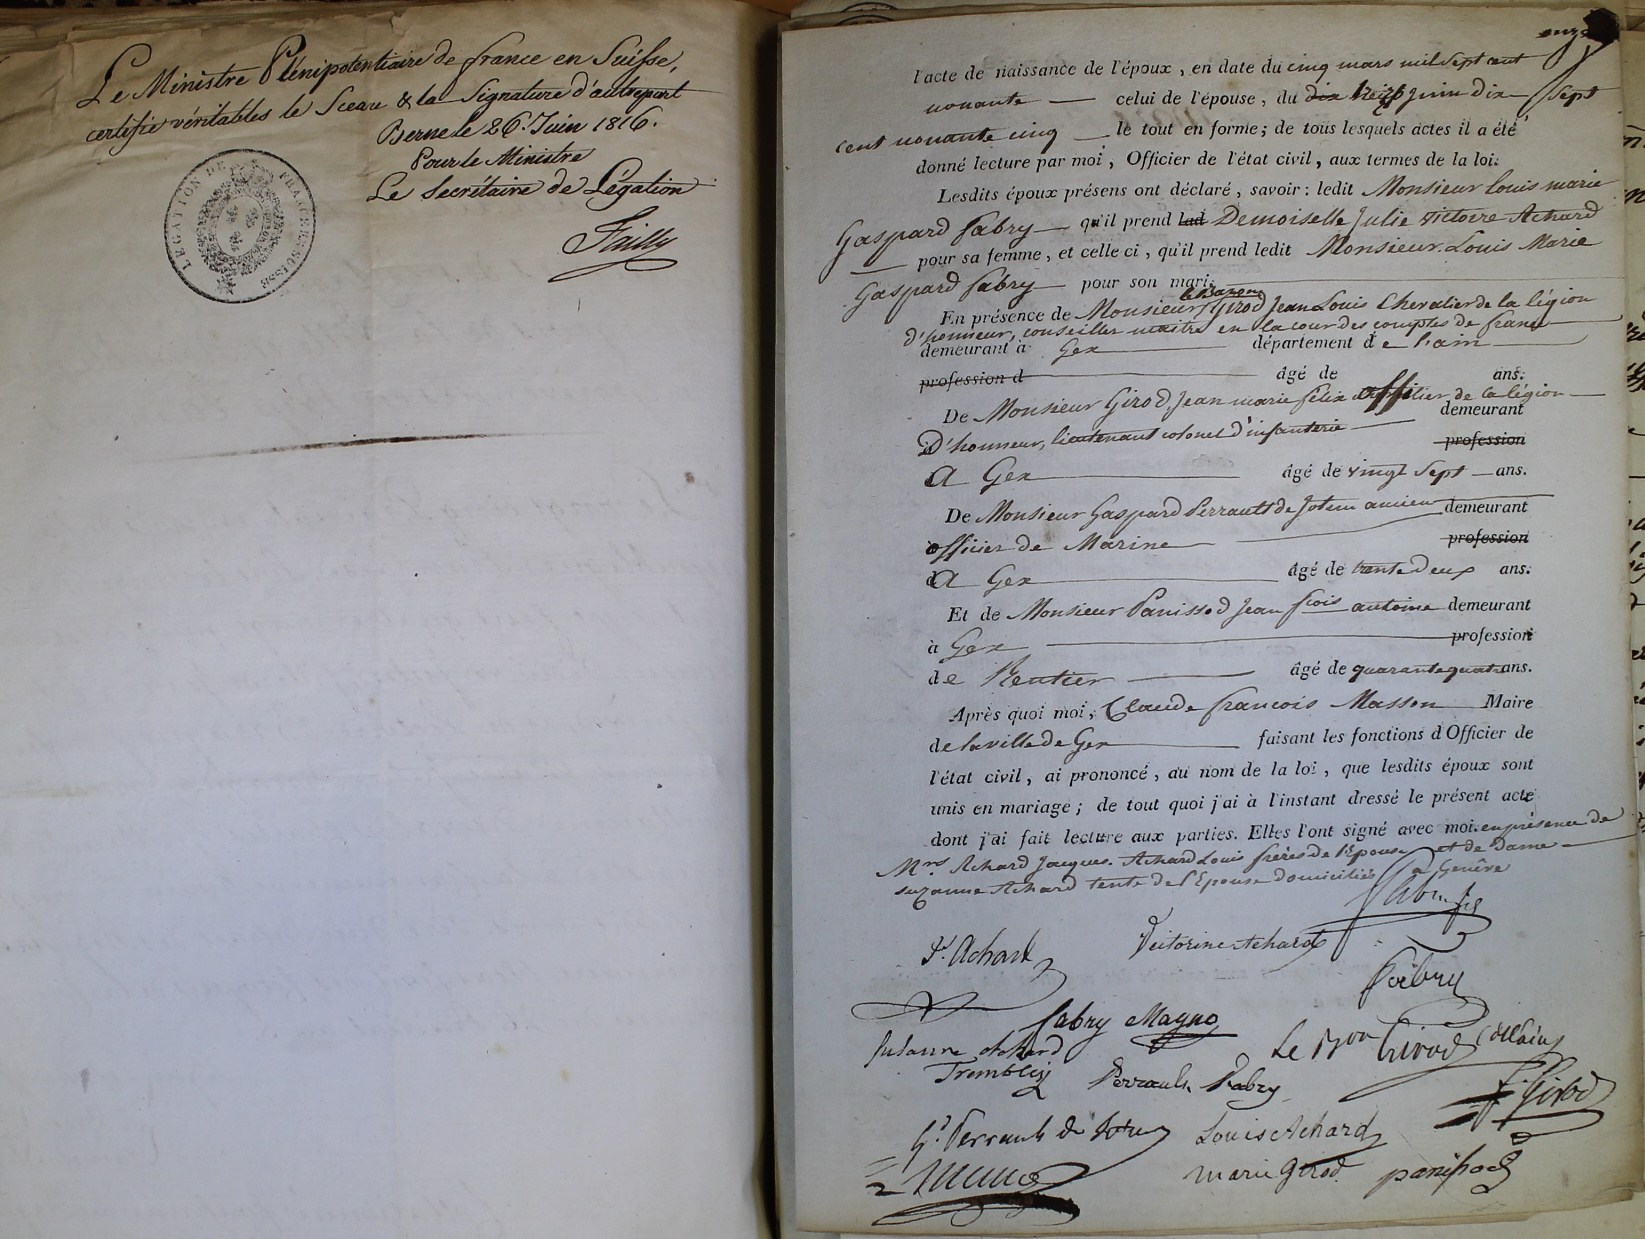 Le Ministre Plénipotentiaire de france en Suisse,
certifie véritables le Sceau & la Signature d'autrepart
Berne le 26. Juin 1816.
Pour le Ministre
Le Secrétaire de Légation
LEGATION DE FRANCE EN SUISSE
onze
l'acte de naissance de l'époux, en date du cinq mars mil sept cent
nonante — celui de l'épouse, du dix treize Juin dix Sept
cent nonante cinq — le tout en forme; de tous lesquels actes il a été
donné lecture par moi, Officier de l'état civil, aux termes de la loi.
Lesdits époux présens ont déclaré, savoir: ledit Monsieur Louis marie
Gaspard fabry — qu'il prend lad Demoiselle Julie victoire Achard
— pour sa femme, et celle ci, qu'il prend ledit Monsieur Louis Marie
Gaspard fabry — pour son mari.
le Baron
En présence de Monsieur Girod Jean Louis Chevalier de la légion
d'honneur, conseiller maitre en la cour des comptes de france
demeurant à Gex — département de l'ain —
profession d — âgé de ans.
De Monsieur Girod, Jean marie félix officier de la légion —
demeurant
D'honneur, lieutenant colonel d'infanterie —
profession
A Gex — âgé de vingt Sept — ans.
De Monsieur Gaspard Perrault de Jotem ancien demeurant
officier de Marine — profession
A Gex — âgé de trente deux ans.
Et de Monsieur Panissod Jean fcois antoine demeurant
à Gex — profession
de Rentier — âgé de quarante quatre ans.
Après quoi moi, Claude francois Masson Maire
de la ville de Gex — faisant les fonctions d'Officier de
l'état civil, ai prononcé, au nom de la loi, que lesdits époux sont
unis en mariage; de tout quoi j'ai à l'instant dressé le présent acte
dont j'ai fait lecture aux parties. Elles l'ont signé avec moi. en présence de
Mrs Achard Jacques. Achard Louis frères de l'Epouse et de dame —
suzanne Achard tente de l'Epouse domiciliés à Genève
Fabry fils
Jq. Achard
Victorine Achard
Fabry
fabry Magno
Susanne Achard
Trembley
Le Bon Girod de l'ain
Perrault Fabry
f. Girod
Gd. Perrault de Jotem
Louis Achard
marie Girod
panissod